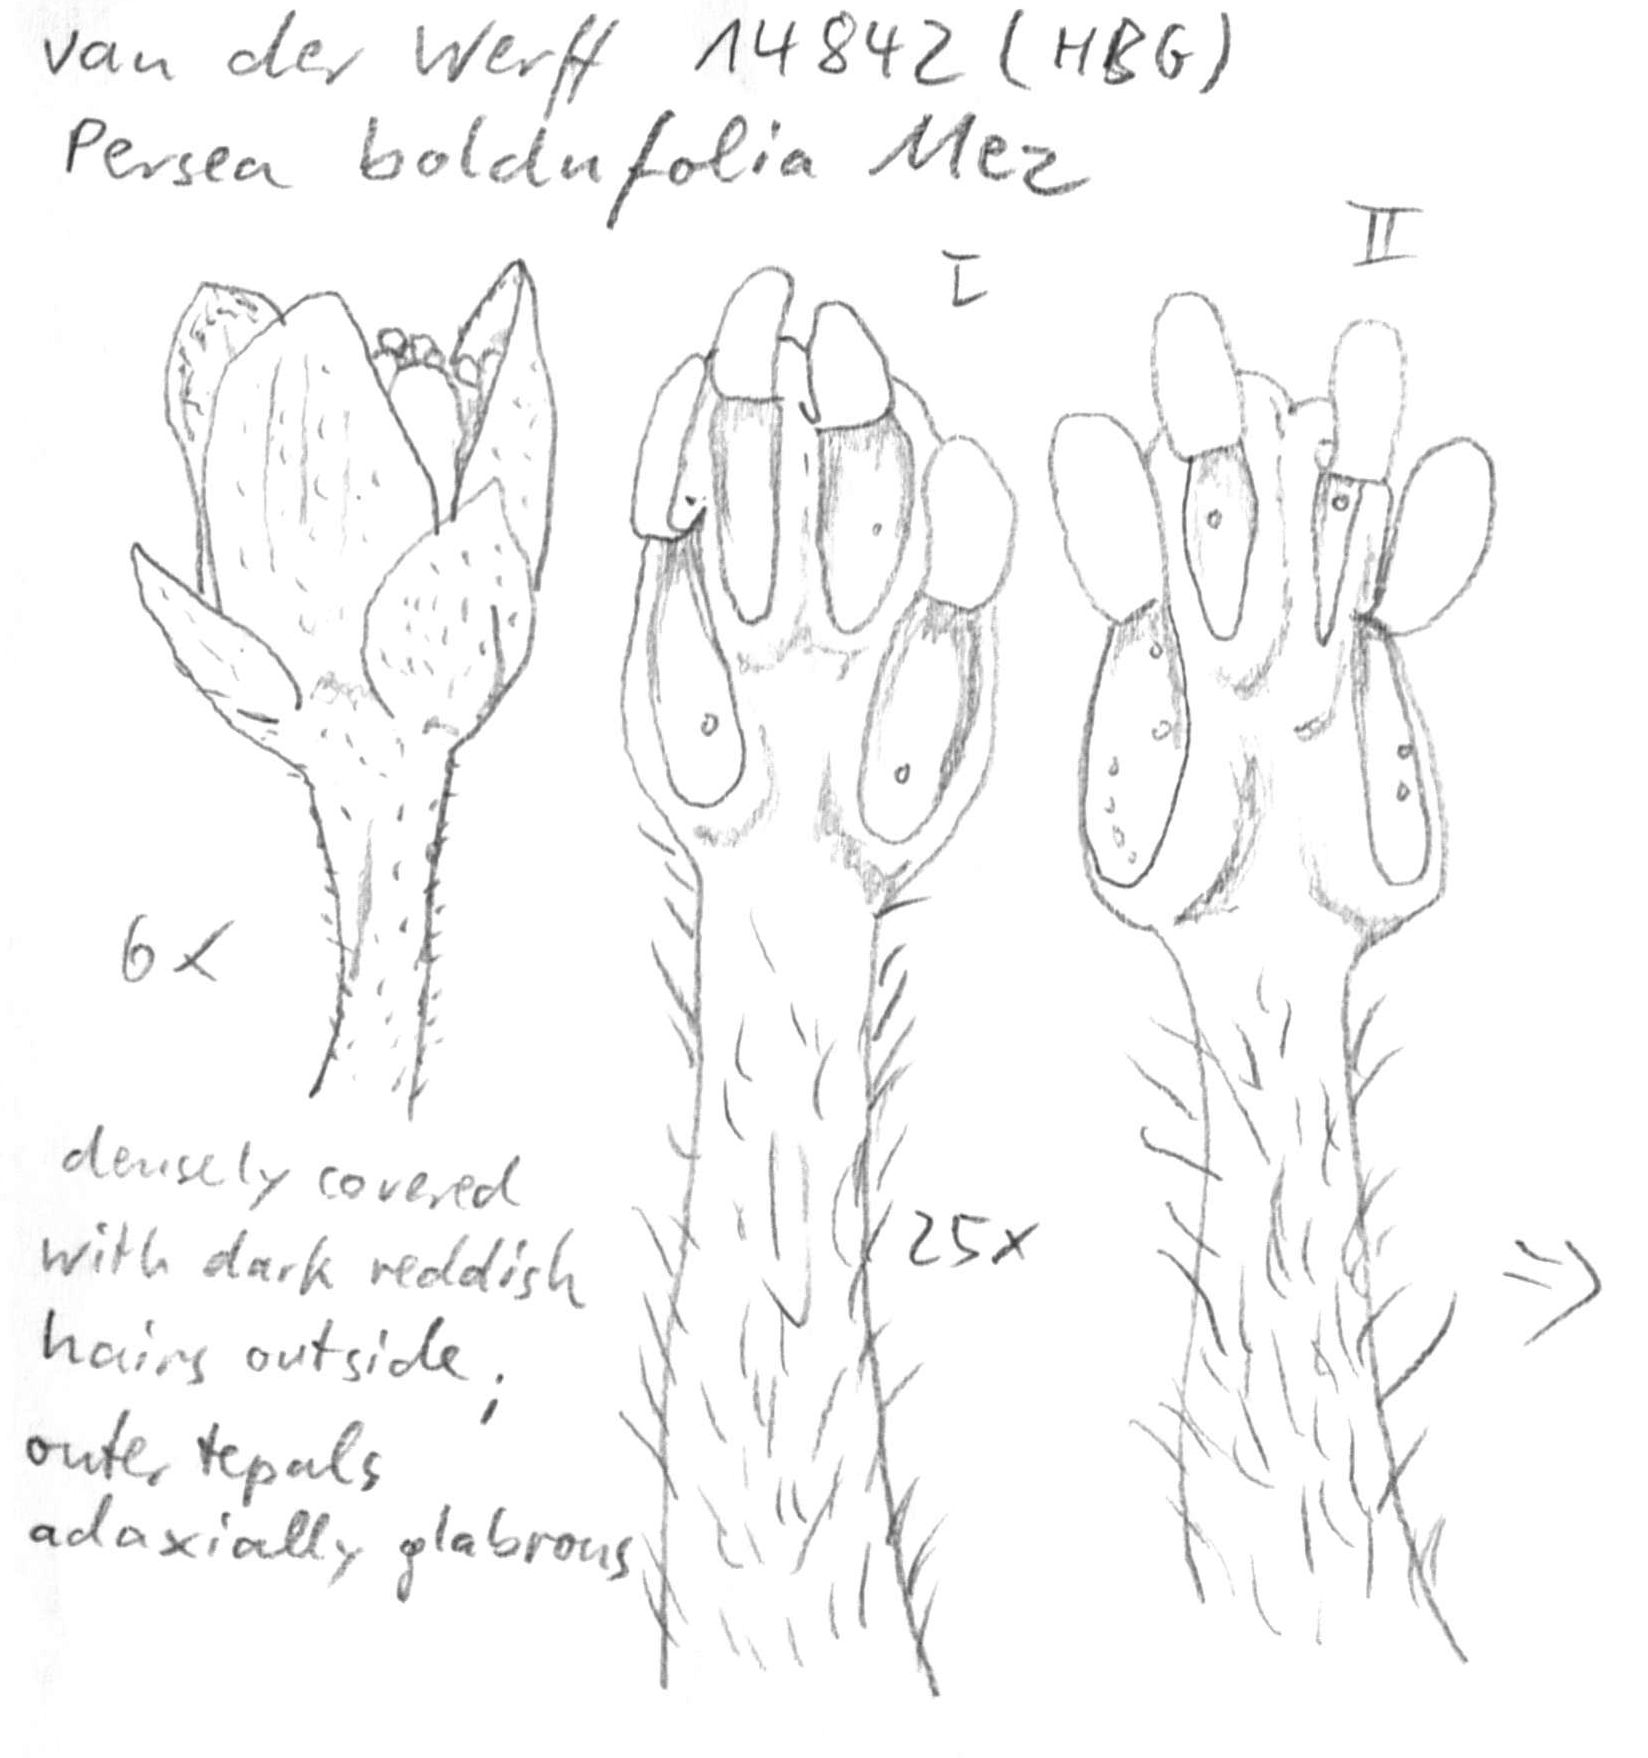 van der Werff 14842 (HBG)
Persea boldufolia Mez
I
II
6x
densely covered
with dark reddish
hairs outside;
outer tepals
adaxially glabrous
25x
⇒